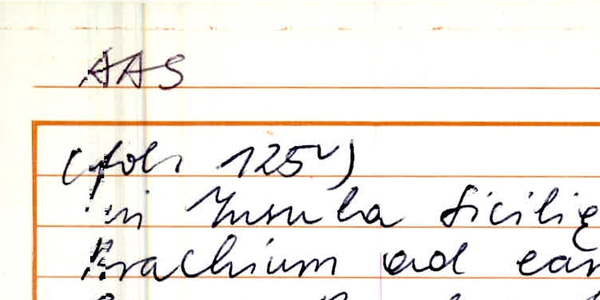 AAS
(fol. 125v)
in Insula Sicilię
Brachium ad ear